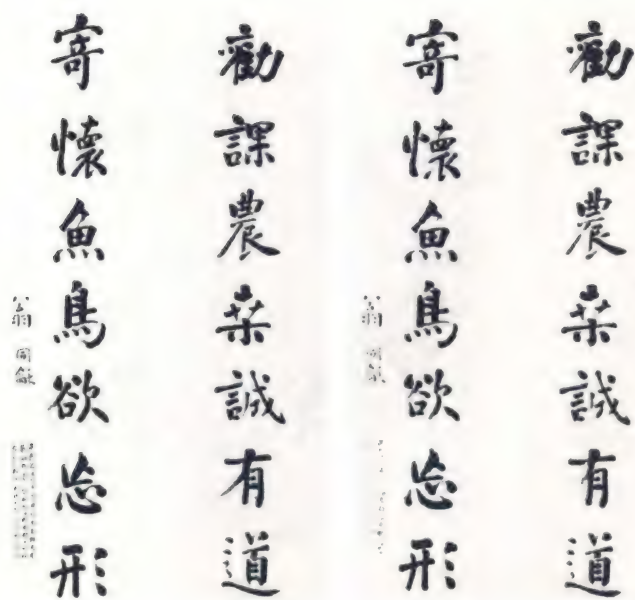 勸課農桒誠有道
寄懷魚鳥欲忘形
翁同龢
勸課農桒誠有道
寄懷魚鳥欲忘形
翁同龢